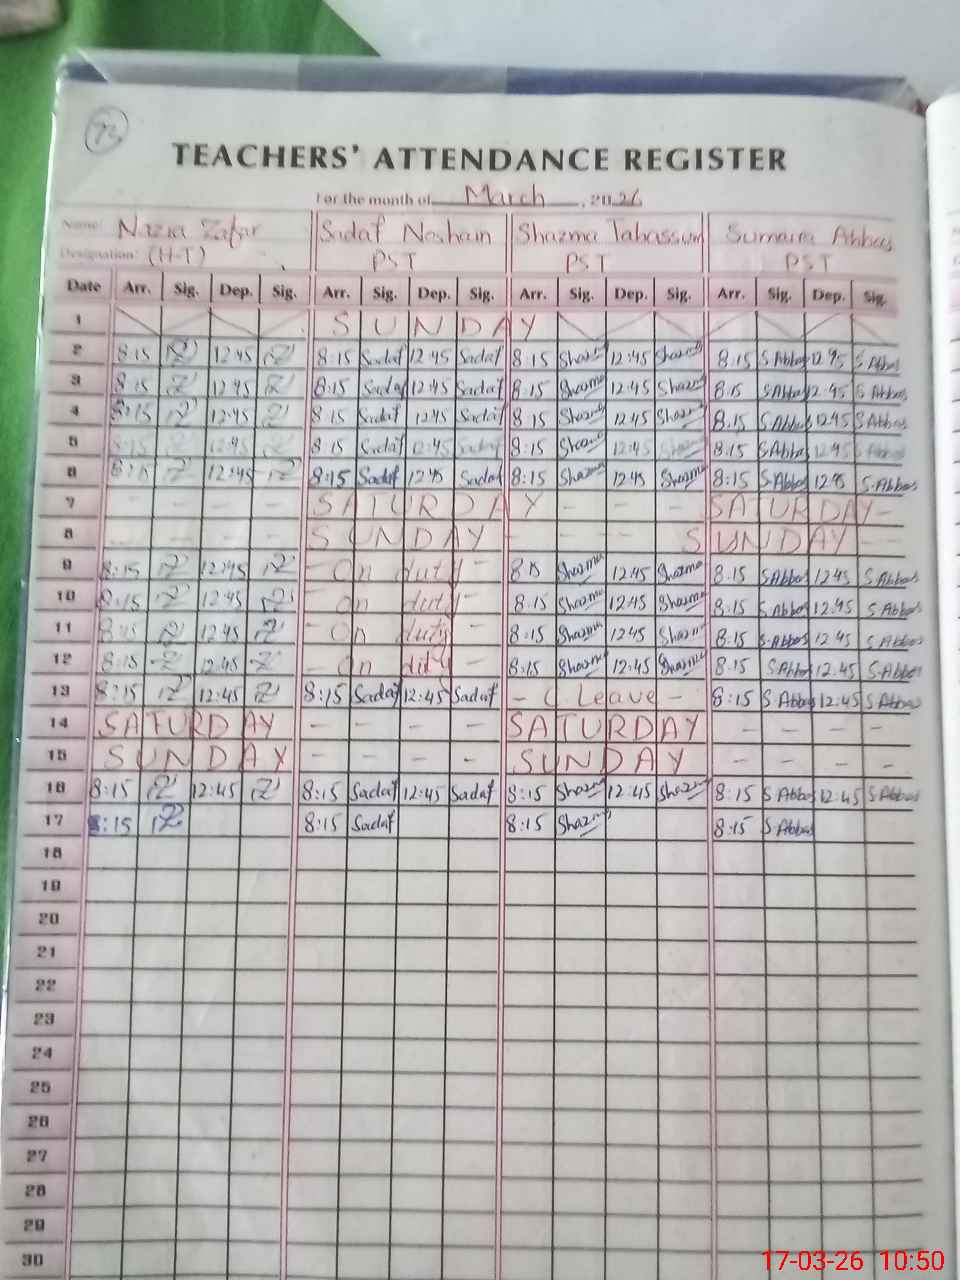 73
TEACHERS' ATTENDANCE REGISTER
For the month of March, 2026
Name: Nazia Zafar Sadaf Noshain Shazma Tabassum Sumaira Abbas
Designation: (H-T) PST PST PST
Date Arr. Sig. Dep. Sig. Arr. Sig. Dep. Sig. Arr. Sig. Dep. Sig. Arr. Sig. Dep. Sig.
1 SUNDAY
2 8:15 12:45 8:15 Sadaf 12:45 Sadaf 8:15 Shazma 12:45 Shazma 8:15 S Abbas 12:45 S Abbas
3 8:15 12:45 8:15 Sadaf 12:45 Sadaf 8:15 Shazma 12:45 Shazma 8:15 S Abbas 12:45 S Abbas
4 8:15 12:45 8:15 Sadaf 12:45 Sadaf 8:15 Shazma 12:45 Shazma 8:15 S Abbas 12:45 S Abbas
5 8:15 12:45 8:15 Sadaf 12:45 Sadaf 8:15 Shazma 12:45 Shazma 8:15 S Abbas 12:45 S Abbas
6 8:15 12:45 8:15 Sadaf 12:45 Sadaf 8:15 Shazma 12:45 Shazma 8:15 S.Abbas 12:45 S.Abbas
7 - - - - SATURDAY - - - SATURDAY -
8 - - - - SUNDAY - - - SUNDAY - -
9 8:15 12:45 - On duty - 8:15 Shazma 12:45 Shazma 8:15 S Abbas 12:45 S Abbas
10 8:15 12:45 - On duty - 8:15 Shazma 12:45 Shazma 8:15 S.Abbas 12:45 S Abbas
11 8:15 12:45 - On duty - 8:15 Shazma 12:45 Shazma 8:15 S.Abbas 12:45 S Abbas
12 8:15 12:45 - On duty - 8:15 Shazma 12:45 Shazma 8:15 S Abbas 12:45 S.Abbas
13 8:15 12:45 8:15 Sadaf 12:45 Sadaf - C Leave - 8:15 S Abbas 12:45 S Abbas
14 SATURDAY - - - - SATURDAY - - - -
15 SUNDAY - - - - SUNDAY - - - -
16 8:15 12:45 8:15 Sadaf 12:45 Sadaf 8:15 Shazma 12:45 Shazma 8:15 S Abbas 12:45 S Abbas
17 8:15 8:15 Sadaf 8:15 Shazma 8:15 S Abbas
18
19
20
21
22
23
24
25
26
27
28
29
30
17-03-26 10:50